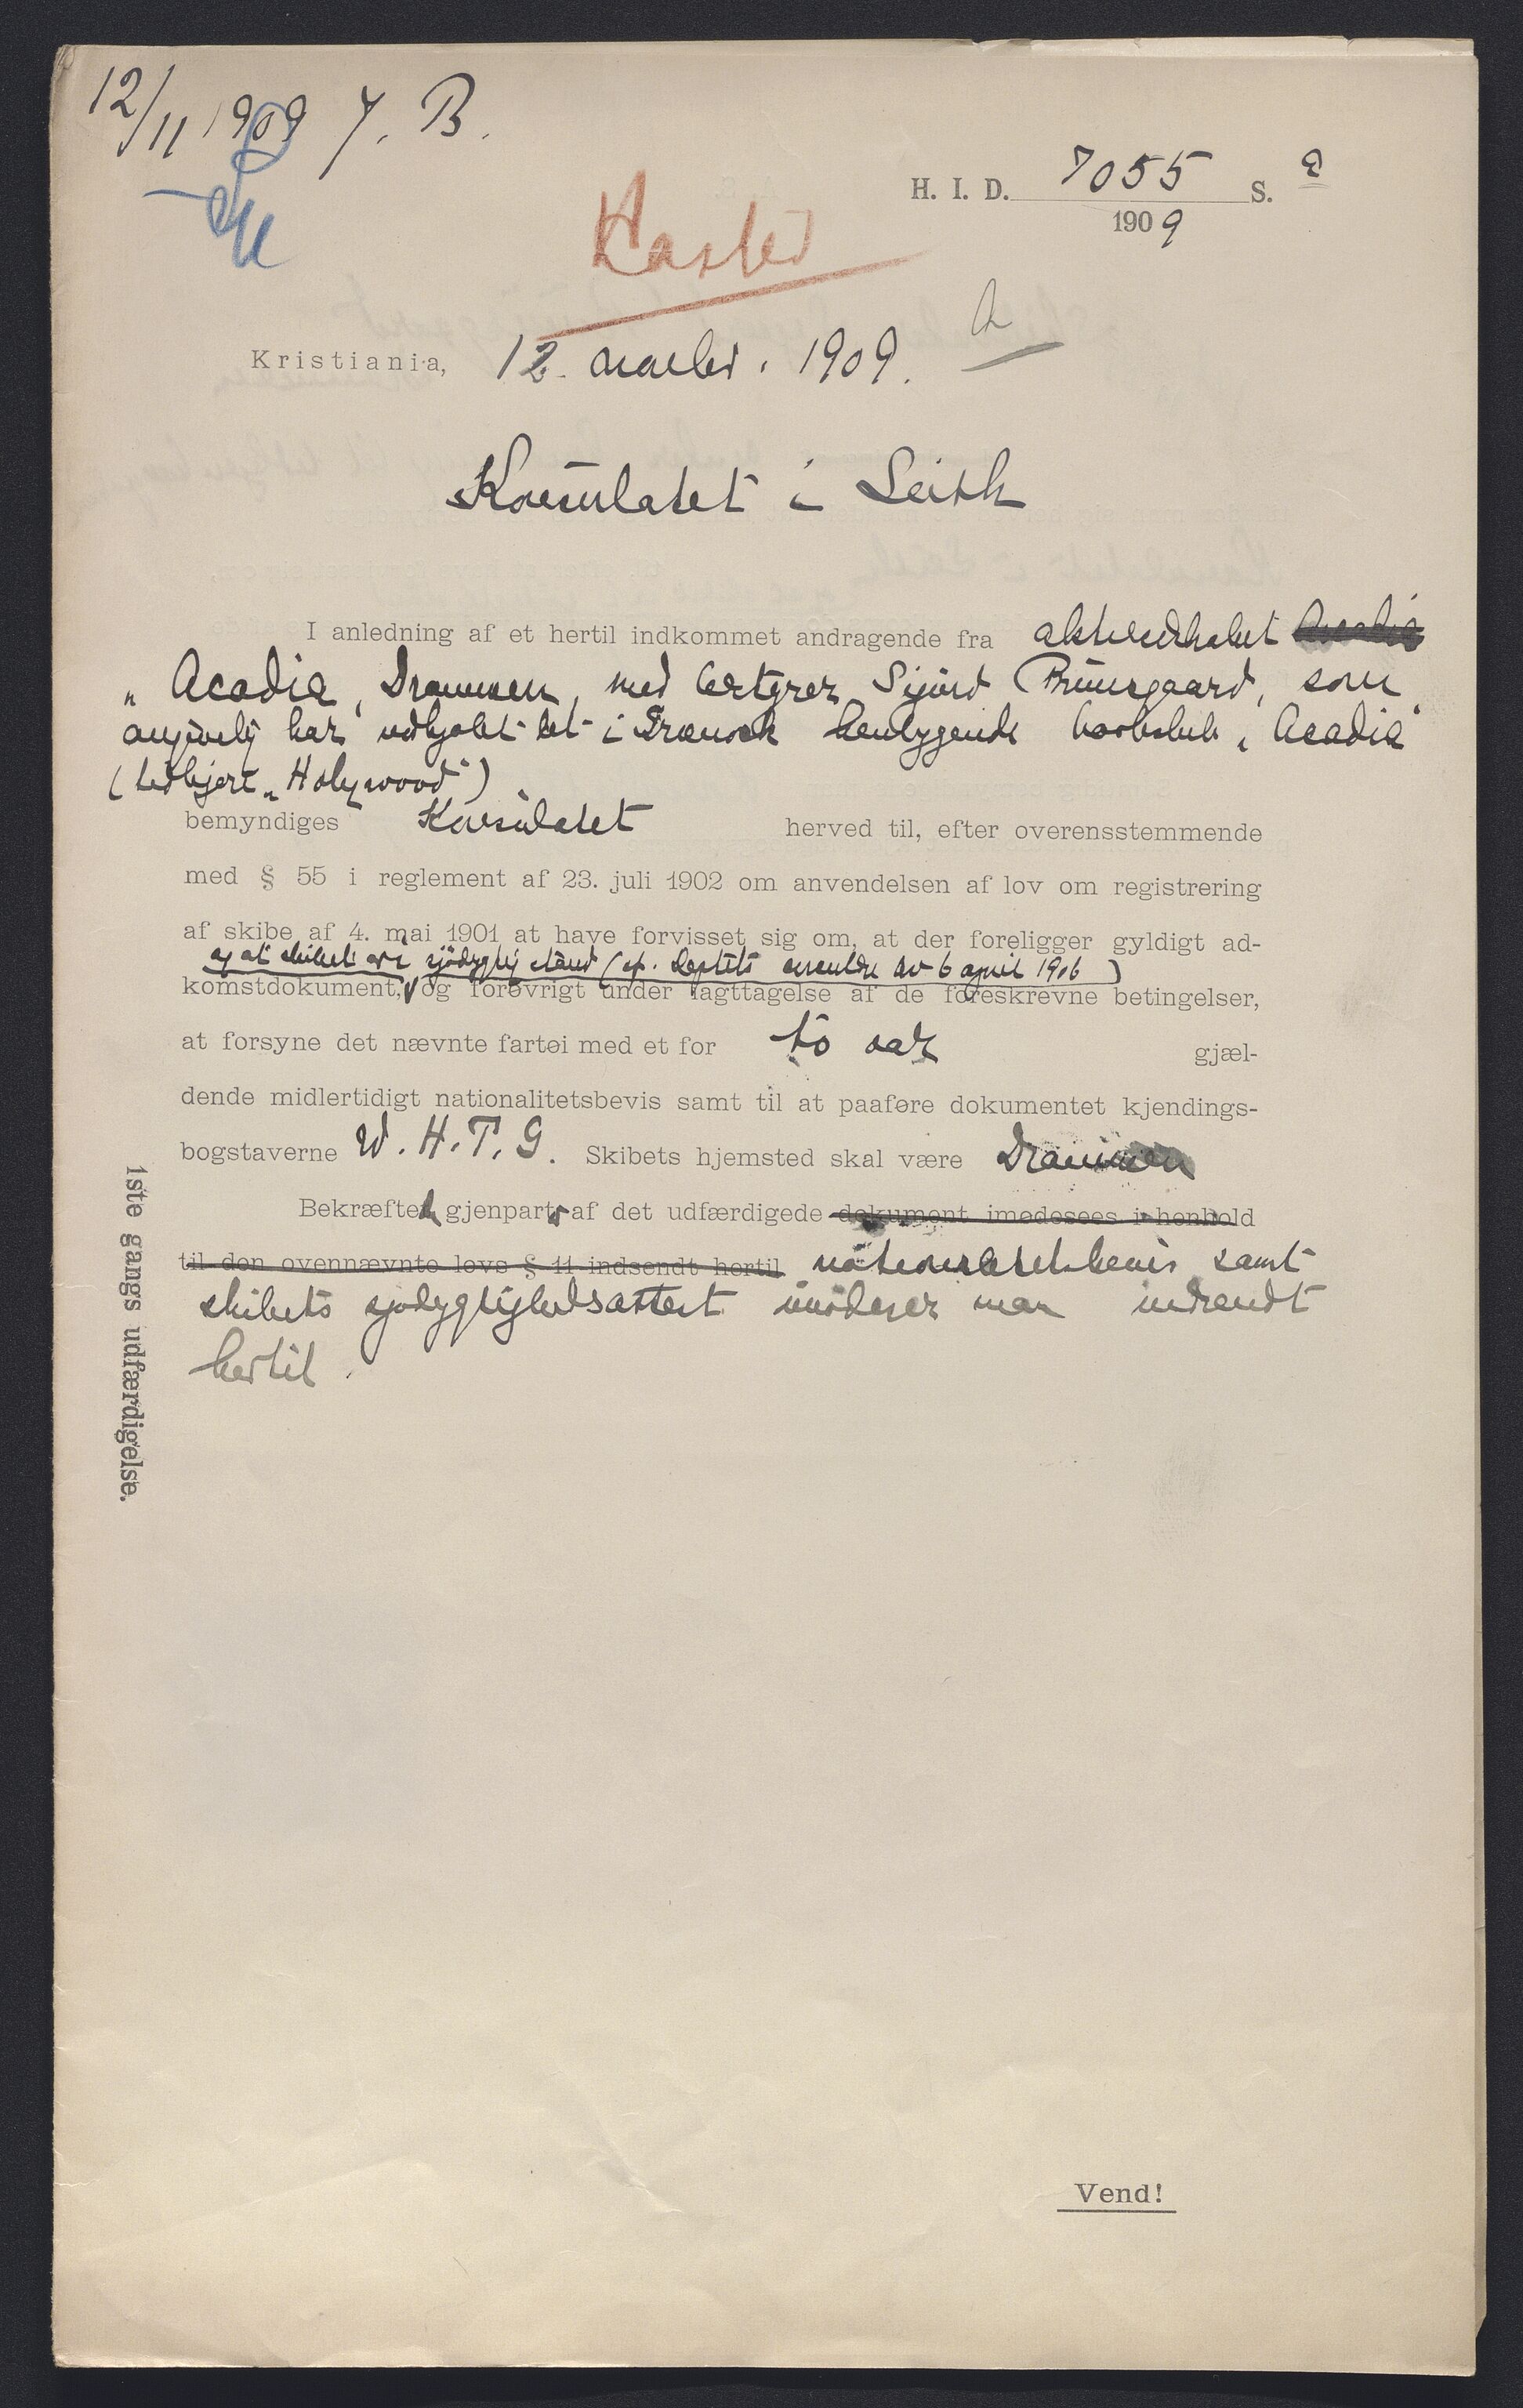 12/11 1909 J. B.
H. I. D. 7055 S. a
1909
Haster
Kristiania, 12. novbr. 1909.
Konsulatet i Leith
I anledning af et hertil indkommet andragende fra aktieselskabet Acadia
„Acadia, Drammen, med bestyrer Sigurd Bruusgaard, som
angivelig har indkjøbt det i henliggende barkskib „Acadia"
(tidligere „Holywood")
bemyndiges Konsulatet herved til, efter overensstemmende
med § 55 i reglement af 23. juli 1902 om anvendelsen af lov om registrering
af skibe af 4. mai 1901 at have forvisset sig om, at der foreligger gyldigt ad-
og at skibet er i sjødygtig stand (cf. Deptets av 6 april 1906)
komstdokument, og forøvrigt under iagttagelse af de foreskrevne betingelser,
at forsyne det nævnte fartøi med et for to aar gjæl-
dende midlertidigt nationalitetsbevis samt til at paaføre dokumentet kjendings-
bogstaverne W. H. T. G. Skibets hjemsted skal være Drammen
Bekræftet gjenpart af det udfærdigede dokument imødesees i henhold
til den ovennævnte lovs § 11 indsendt hertil nationalitetsbevis samt
skibets sjødygtighedsattest imødeser man indsendt
hertil.
1ste gangs udfærdigelse.
Vend!